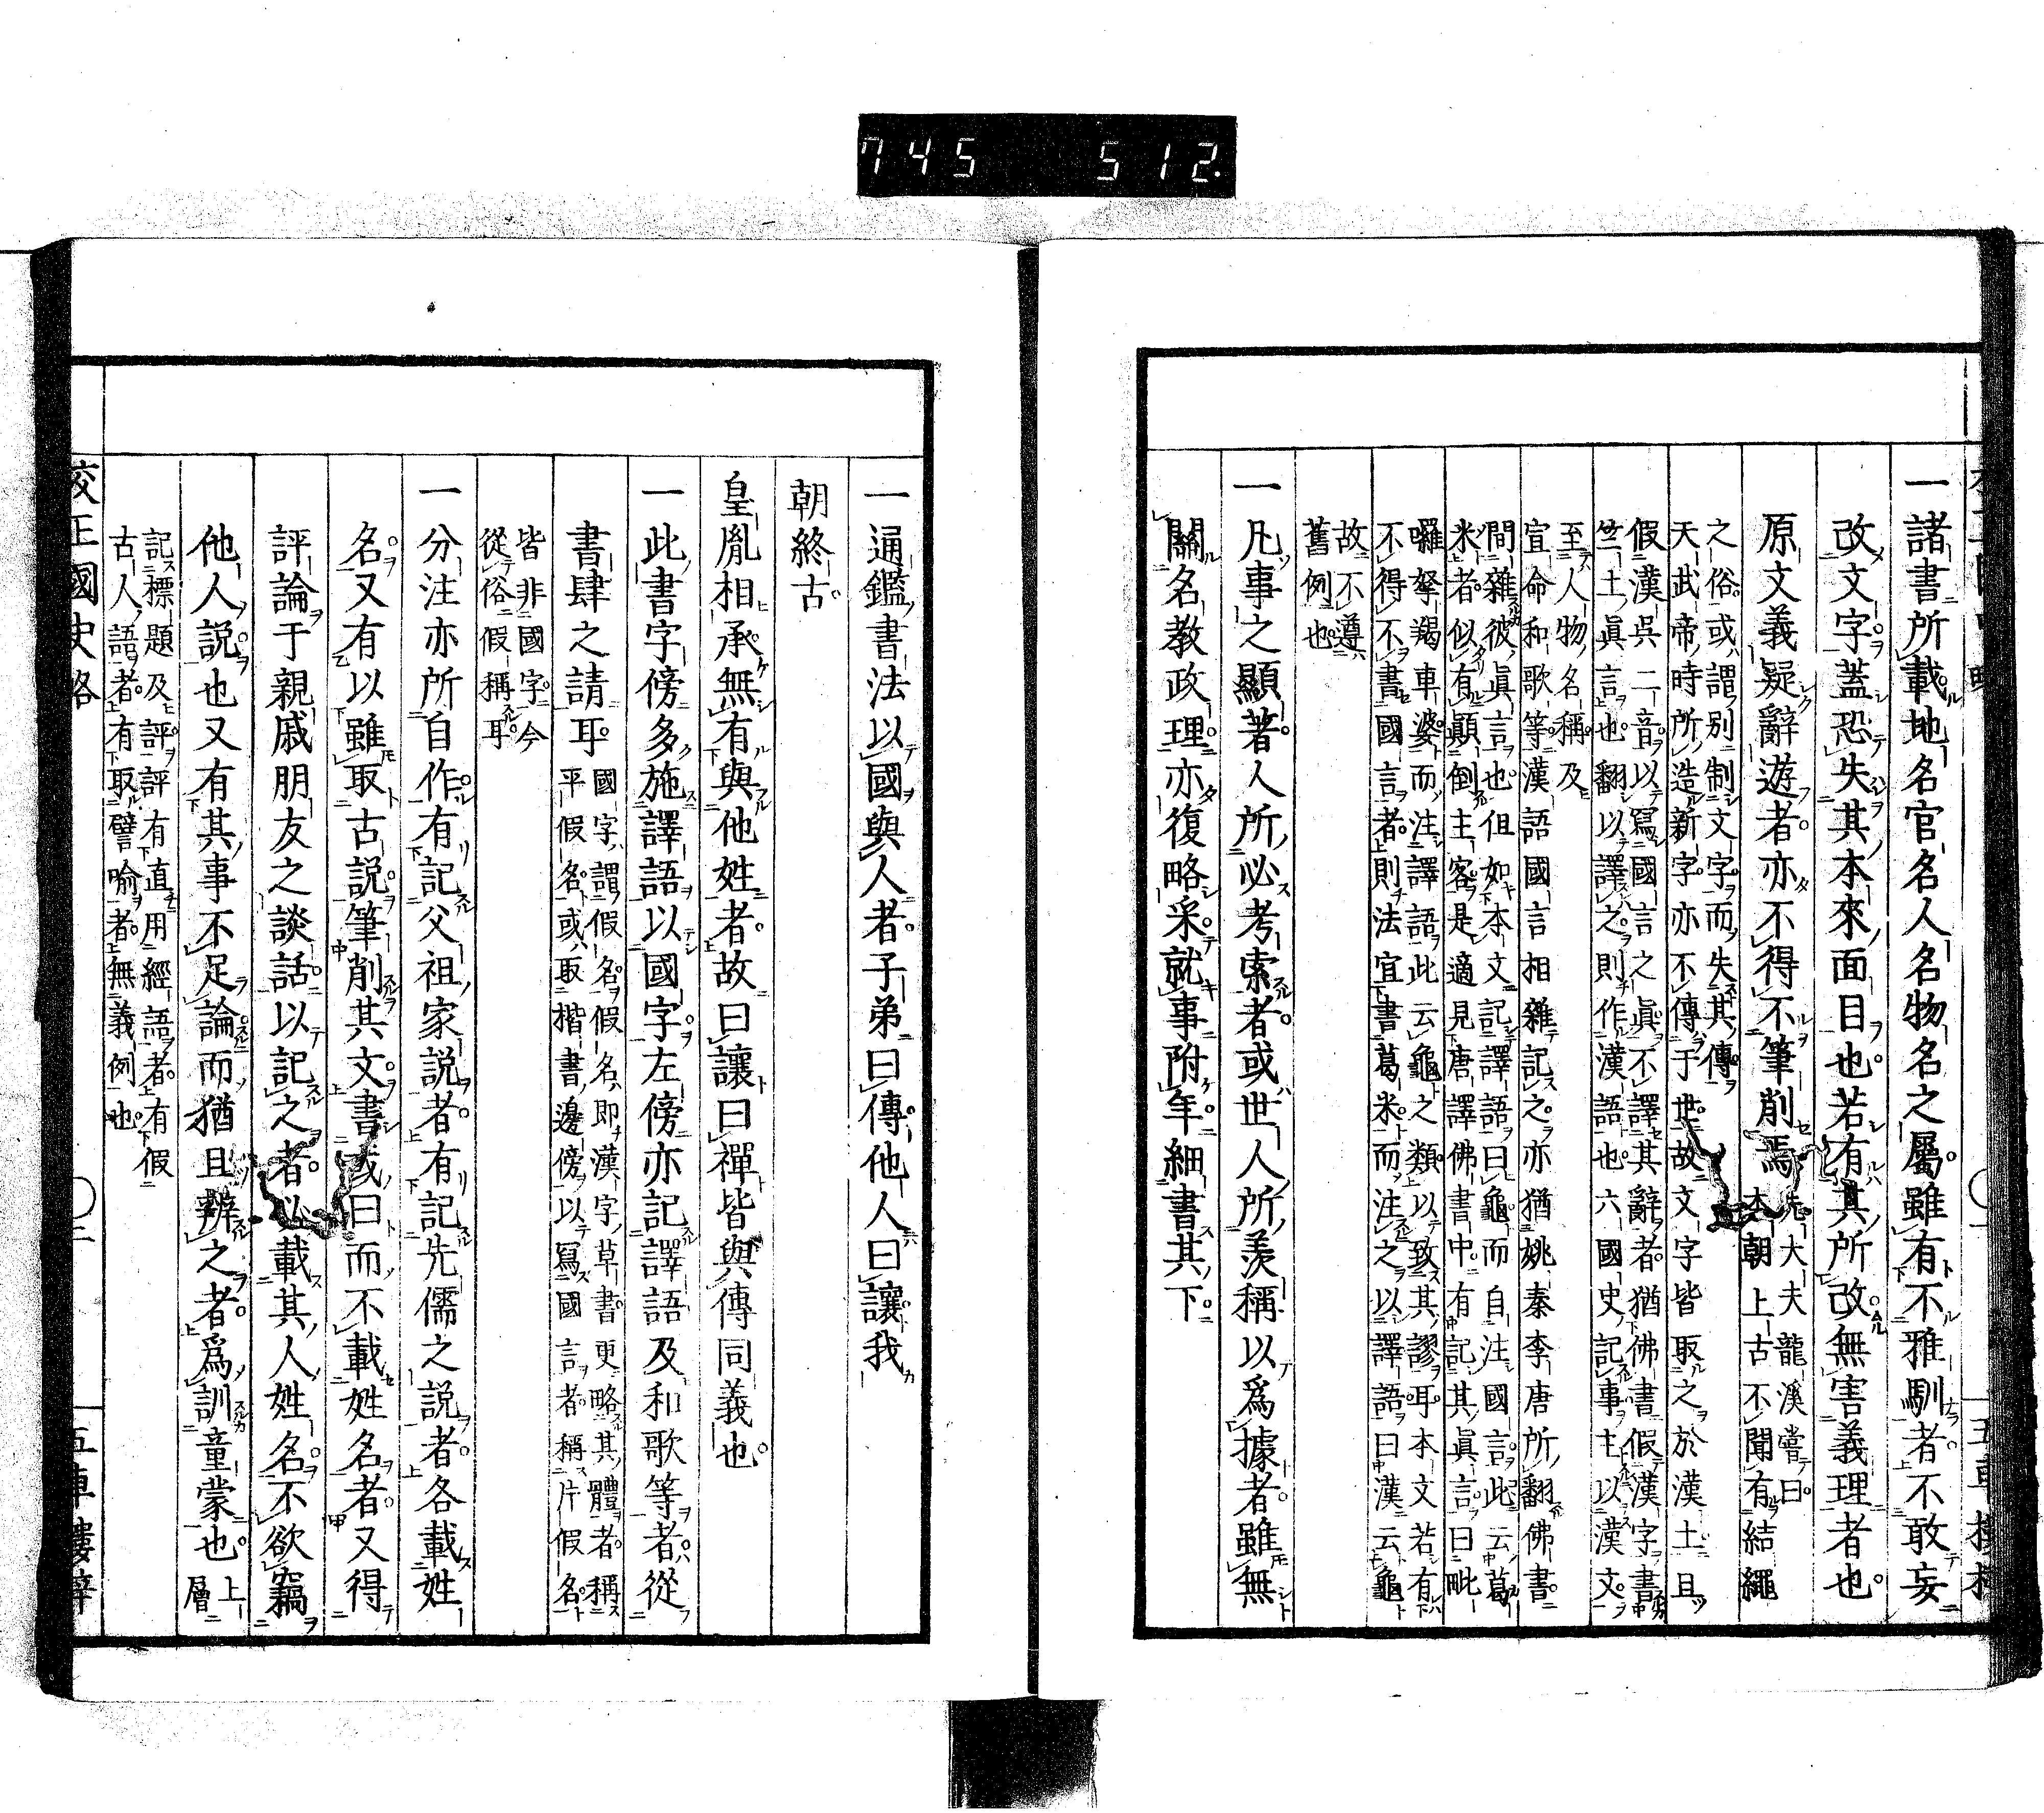 745 512.
一諸書所載地名官名人名物名之屬雖有不雅馴者不敢妄
改文字蓋恐失其本來面目也若有其所改無害義理者也
原文義疑辭遊者亦不得不筆削焉
先大夫龍溪嘗曰
本朝上古不聞有結繩
之俗或謂別制文字而失其傳
天武帝時所造新字亦不傳于世故文字皆取之於漢土且
假漢吳二音以寫國言之眞不譯其辭者猶佛書假漢字書
竺土眞言也翻以譯之則作漢語也六國史記事以漢文
至人物名稱及
宣命和歌等漢語國言相雜記之亦猶姚秦李唐所翻佛書
間雜彼眞言也但如本文記譯語曰龜而自注國言此云葛
米者似有顚倒主客是適見唐譯佛書中有記其眞言曰毗
囉拏羯車婆而注譯語此云龜之類以致其謬耳本文若有
不得不書國言者則法宜書葛米而注之以譯語曰漢云龜
故不遵
舊例也
一凡事之顯著人所必考索者或世人所羨稱以爲據者雖無
關名教政理亦復略采就事附年細書其下
一通鑑書法以國與人者子弟曰傳他人曰讓我
朝終古
皇胤相承無有與他姓者故曰讓曰禪皆與傳同義也
一此書字傍多施譯語以國字左傍亦記譯語及和歌等者從
書肆之請耳
國字謂假名假名即漢字草書更略其體者稱
平假名或取楷書邊傍以寫國言者稱片假名
皆非國字今
從俗假稱耳
一分注亦所自作有記父祖家説者有記先儒之説者各載姓
名又有以雖取古説筆削其文書或曰而不載姓名者又得
評論于親戚朋友之談話以記之者必載其人姓名不欲竊
他人説也又有其事不足論而猶且辨之者爲訓童蒙也
上層
記標題及評評有直用經語者有假
古人語者有取譬喻者無義例也
校正國史略
二
五車樓梓